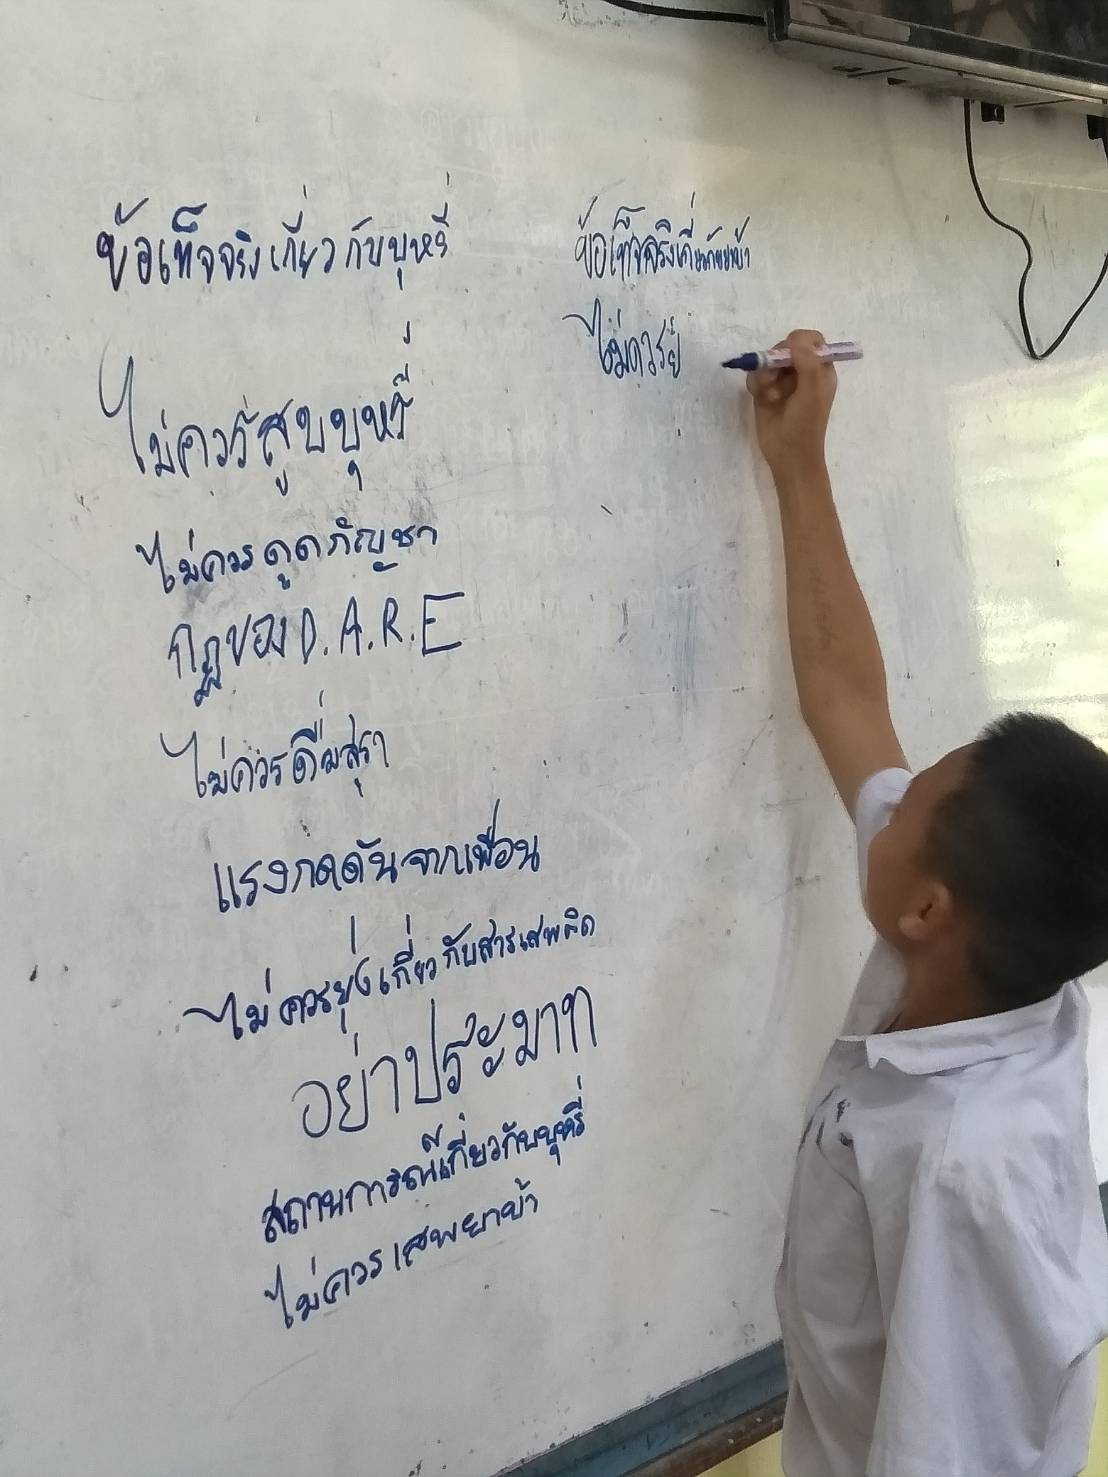 ข้อเท็จจริงเกี่ยวกับบุหรี่
ไม่ควรสูบบุหรี่
ไม่ควรดูดกัญชา
กฎของ D.A.R.E
ไม่ควรดื่มสุรา
แรงกดดันจากเพื่อน
ไม่ควรยุ่งเกี่ยวกับสารเสพติด
อย่าประมาท
สถานการณ์เกี่ยวกับบุหรี่
ไม่ควรเสพยาบ้า
ข้อเท็จจริงเกี่ยวกับยาบ้า
ไม่ควรยุ